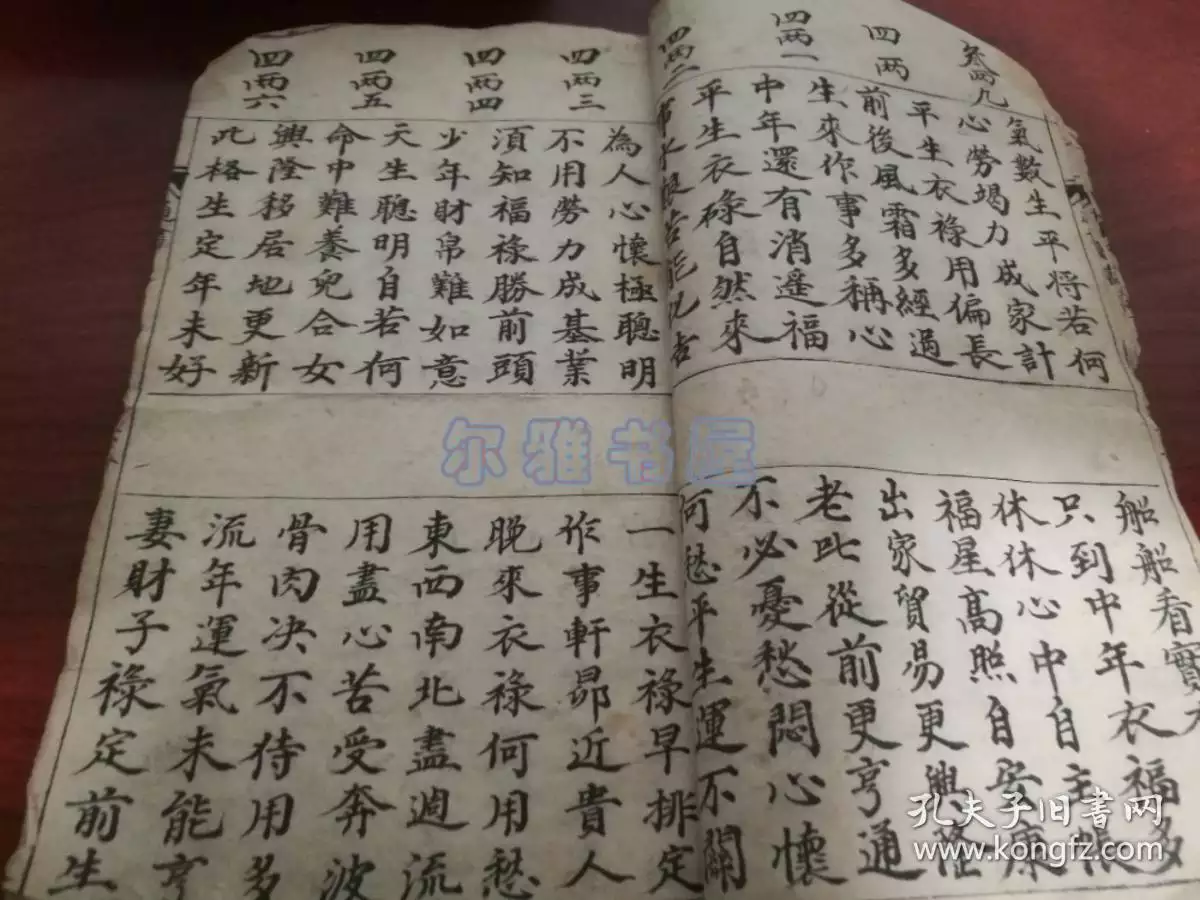 叁两九
四两
四两一
四两二
氣數生平將若何
心勞竭力成家計
平生衣祿用偏長
前後風霜多經過
生來作事多稱心
中年還有消遙福
平生衣碌自然來
苦能
船船看寶
只到中年衣福多
休休心中自主帳
福星高照自安康
出家貿易更興隆
老此從前更亨通
不必憂愁悶心懷
何愁平生運不關
四两三
四两四
四两五
四两六
為人心懷極聰明
不用勞力成基業
須知福祿勝前頭
少年財帛難如意
天生聰明自若何
命中難養兒合女
興隆移居地更新
此格生定年未好
一生衣祿早排定
作事軒昴近貴人
晚來衣祿何用愁
東西南北盡週流
用盡心苦受奔波
骨肉决不待用多
流年運氣未能亨
妻財子祿定前生
尔雅书屋
孔夫子旧书网
www.kongfz.com